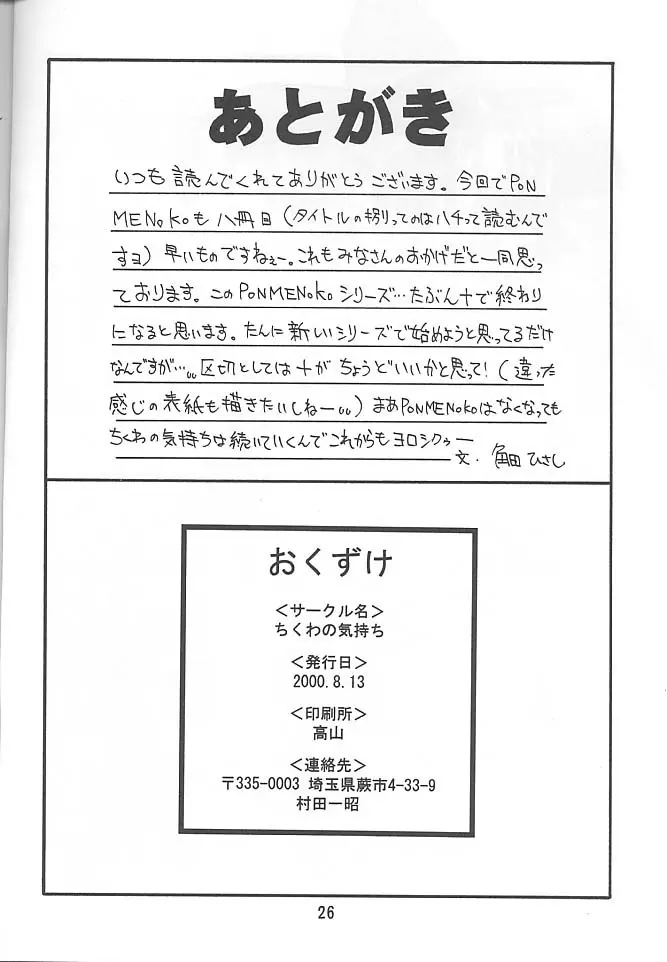 あとがき
いつも読んでくれてありがとうございます。今回でPON
MENoKoも八冊目（タイトルの捌ってのはハチって読むんで
すヨ）早いものですねぇー。これもみなさんのおかげだと一同思っ
ております。このPONMENoKoシリーズ…たぶん十で終わり
になると思います。たんに新しいシリーズで始めようと思ってるだけ
なんですが…。。区切としては十がちょうどいいかと思って！（違った
感じの表紙も描きたいしねー。。）まあPONMENoKoはなくなっても
ちくわの気持ちは続いていくんでこれからもヨロシクゥー
文・角田ひさし
おくずけ
＜サークル名＞
ちくわの気持ち
＜発行日＞
2000.8.13
＜印刷所＞
高山
＜連絡先＞
〒335-0003 埼玉県蕨市4-33-9
村田一昭
26